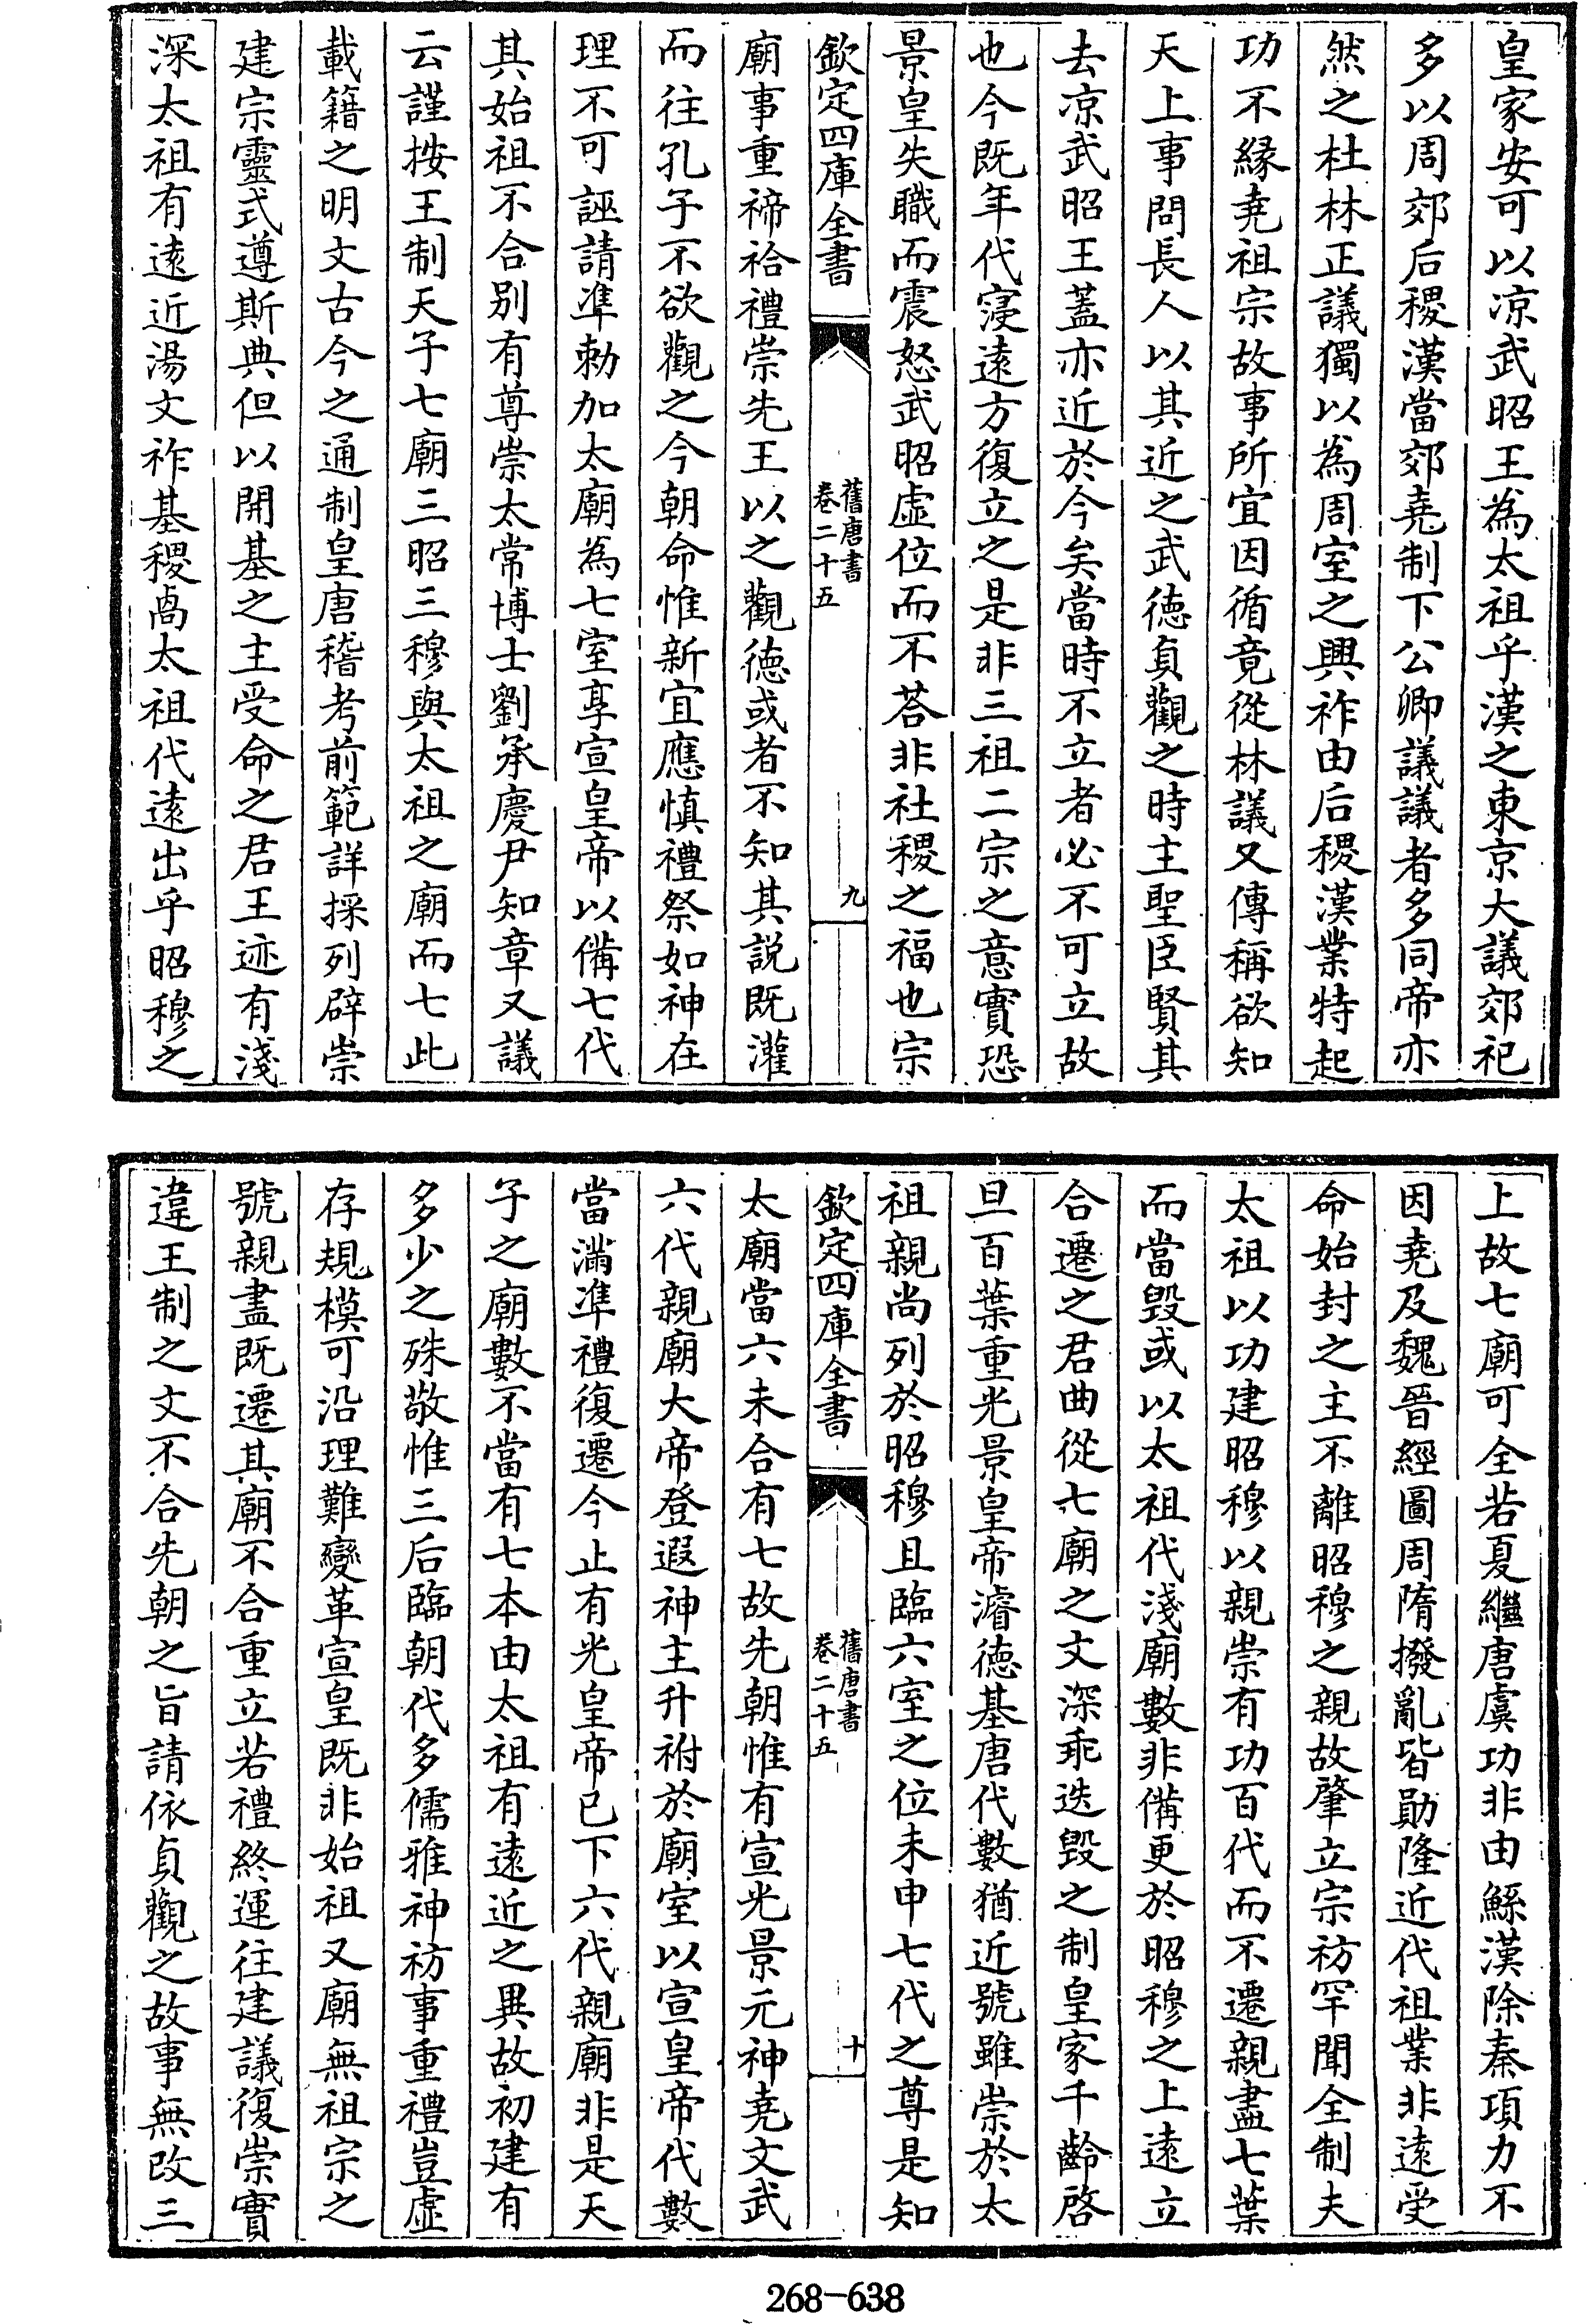 皇家安可以凉武昭王為太祖乎漢之東京大議郊祀
多以周郊后稷漢當郊堯制下公卿議議者多同帝亦
然之杜林正議獨以為周室之興祚由后稷漢業特起
功不緣堯祖宗故事所宜因循竟從林議又傳稱欲知
天上事問長人以其近之武德貞觀之時主聖臣賢其
去凉武昭王蓋亦近於今矣當時不立者必不可立故
也今既年代寖遠方復立之是非三祖二宗之意實恐
景皇失職而震怒武昭虛位而不荅非社稷之福也宗
欽定四庫全書
舊唐書
卷二十五
九
廟事重禘祫禮崇先王以之觀德或者不知其説既灌
而往孔子不欲觀之今朝命惟新宜應慎禮祭如神在
理不可誣請凖勅加太廟為七室享宣皇帝以備七代
其始祖不合别有尊崇太常博士劉承慶尹知章又議
云謹按王制天子七廟三昭三穆與太祖之廟而七此
載籍之明文古今之通制皇唐稽考前範詳採列辟崇
建宗靈式遵斯典但以開基之主受命之君王迹有淺
深太祖有遠近湯文祚基稷卨太祖代遠出乎昭穆之
上故七廟可全若夏繼唐虞功非由鯀漢除秦項力不
因堯及魏晉經圖周隋撥亂皆勛隆近代祖業非遠受
命始封之主不離昭穆之親故肇立宗祊罕聞全制夫
太祖以功建昭穆以親崇有功百代而不遷親盡七葉
而當毁或以太祖代淺廟數非備更於昭穆之上遠立
合遷之君曲從七廟之文深乖迭毁之制皇家千齡啓
旦百葉重光景皇帝濬德基唐代數猶近號雖崇於太
祖親尚列於昭穆且臨六室之位未申七代之尊是知
欽定四庫全書
舊唐書
卷二十五
十
太廟當六未合有七故先朝惟有宣光景元神堯文武
六代親廟大帝登遐神主升祔於廟室以宣皇帝代數
當滿凖禮復遷今止有光皇帝已下六代親廟非是天
子之廟數不當有七本由太祖有遠近之異故初建有
多少之殊敬惟三后臨朝代多儒雅神祊事重禮豈虛
存規模可沿理難變革宣皇既非始祖又廟無祖宗之
號親盡既遷其廟不合重立若禮終運往建議復崇實
違王制之文不合先朝之旨請依貞觀之故事無改三
268-638